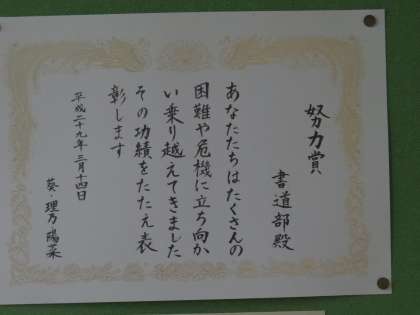 努力賞
書道部殿
あなたたちはたくさんの
困難や危機に立ち向か
い乗り越えてきました
その功績をたたえ表
彰します
平成二十九年三月十四日
葵 理乃 陽菜